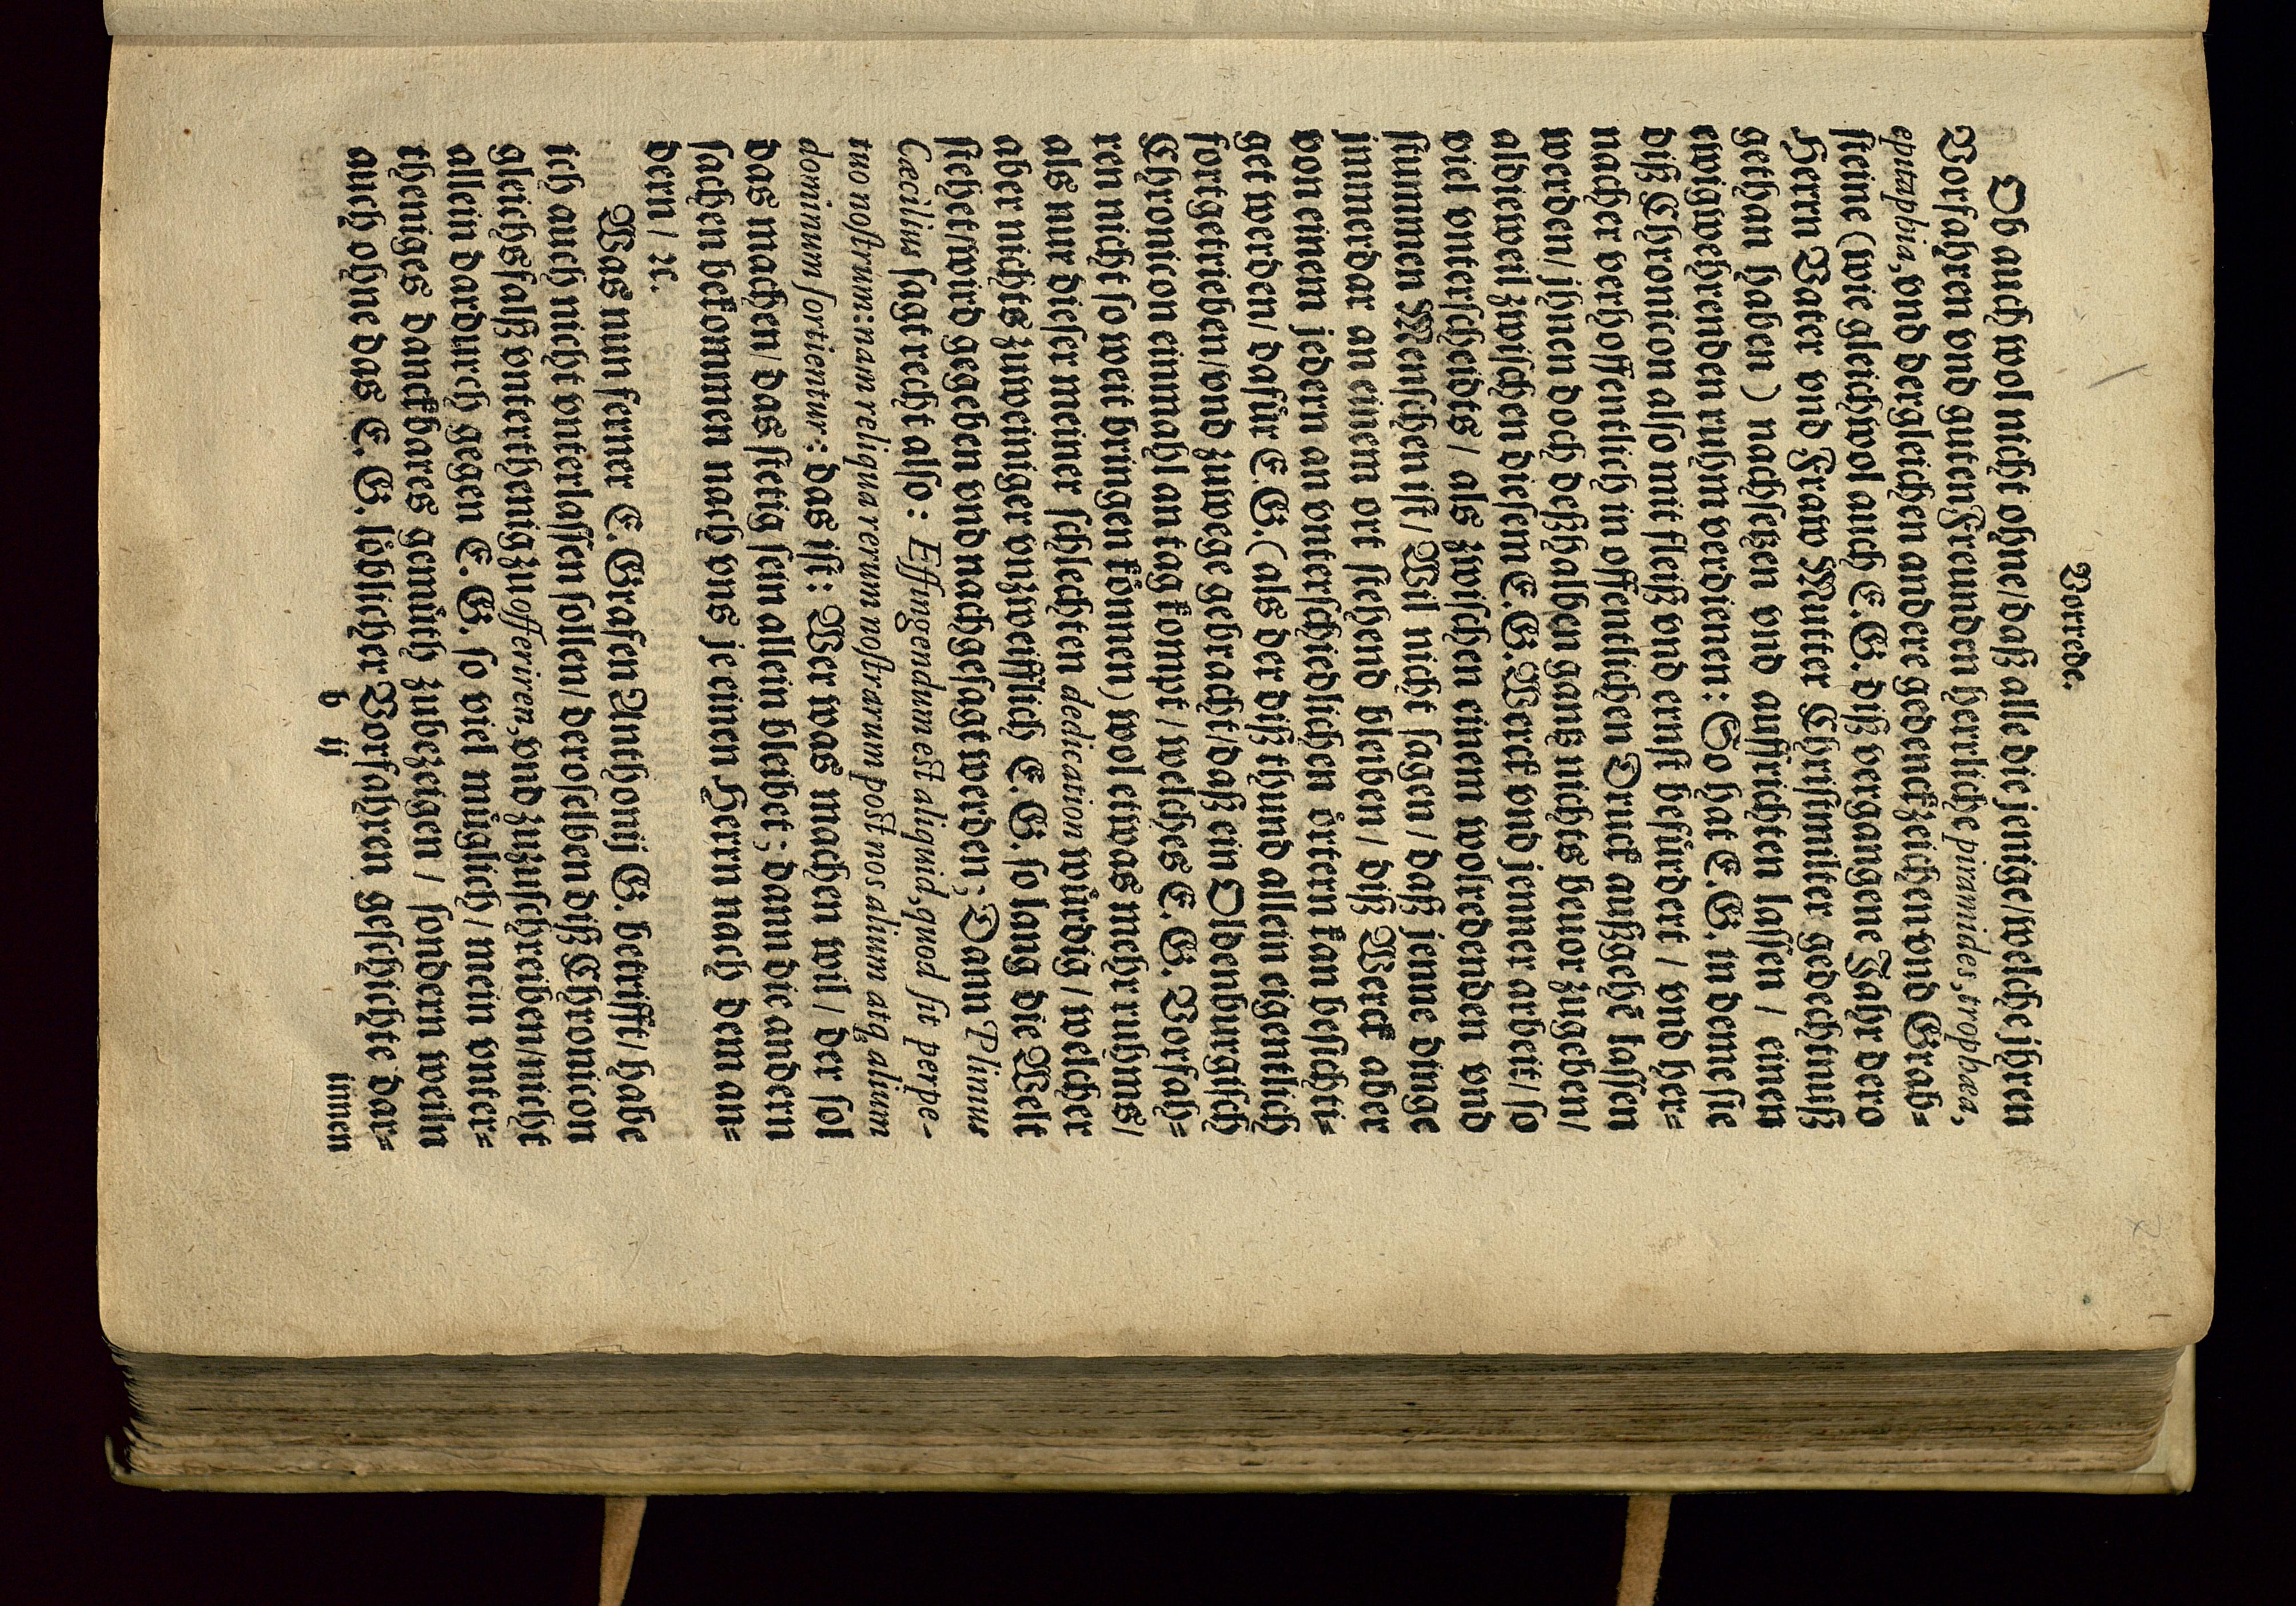 Vorrede.
Ob auch wol nicht ohne/ daß alle die jenige/ welche jhren
Vorfahren vnd guten Freunden herrliche piramides, trophæa,
epitaphia, vnd dergleichen andere gedenckzeichen vnd Grab=
steine (wie gleichwol auch E. G. diß vergangene Jahr dero
Herrn Vater vnd Fraw Mutter Christmilter gedechtnuß
gethan haben) nachsetzen vnd auffrichten lassen/ einen
ewigwehrenden ruhm verdienen: So hat E. G. in deme sie
diß Chronicon also mit fleiß vnd ernst befürdert/ vnd her=
nacher verhoffentlich in offentlichen Druck außgehē lassen
werden/ jhnen doch deßhalben gantz nichts beuor zugeben/
aldieweil zwischen diesem E. G. Werck vnd jenner arbeit/ so
viel vnterscheidts/ als zwischen einem wolredenden vnd
stummen Menschen ist/ Wil nicht sagen/ daß jenne dinge
jmmerdar an einem ort stehend bleiben/ diß Werck aber
von einem jedern an vnterschiedlichen örtern kan besichti=
get werden/ dafür E. G. (als der diß thun d allein eigentlich
fortgetrieben/ vnd zuwege gebracht/ daß ein Oldenburgisch
Chronicon einmahl an tag kompt/ welches E. G. Vorfah=
ren nicht so weit bringen können) wol etwas mehr ruhms/
als nur dieser meiner schlechten dedication würdig/ welcher
aber nichts zuweiniger vnzweifflich E. G. so lang die Welt
stehet/ wird gegeben vnd nachgesagt werden; Dann Plinius
Cæcilius sagt recht also: Effingendum est aliquid, quod sit perpe-
tuo nostrum: nam reliqua rerum nostrarum post nos alium atq; alium
dominum sortientur: das ist: Wer was machen wil/ der sol
das machen/ das stetig sein allein bleibet; dann die andern
sachen bekommen nach vns je einen Herrn nach dem an=
dern/ ꝛc.
Was nun ferner E. Grafen Anthonij G. betrifft/ habe
ich auch nicht vnterlassen sollen/ deroselben diß Chronicon
gleichsfalß vnterthenig zu offeriren, vnd zuzuschreiben/ nicht
allein dardurch gegen E. G. so viel müglich/ mein vnter=
theniges danckbares gemüth zubezeigen/ sondern weiln
auch ohne das E. G. löblicher Vorfahren geschichte dar=
b ij
innen